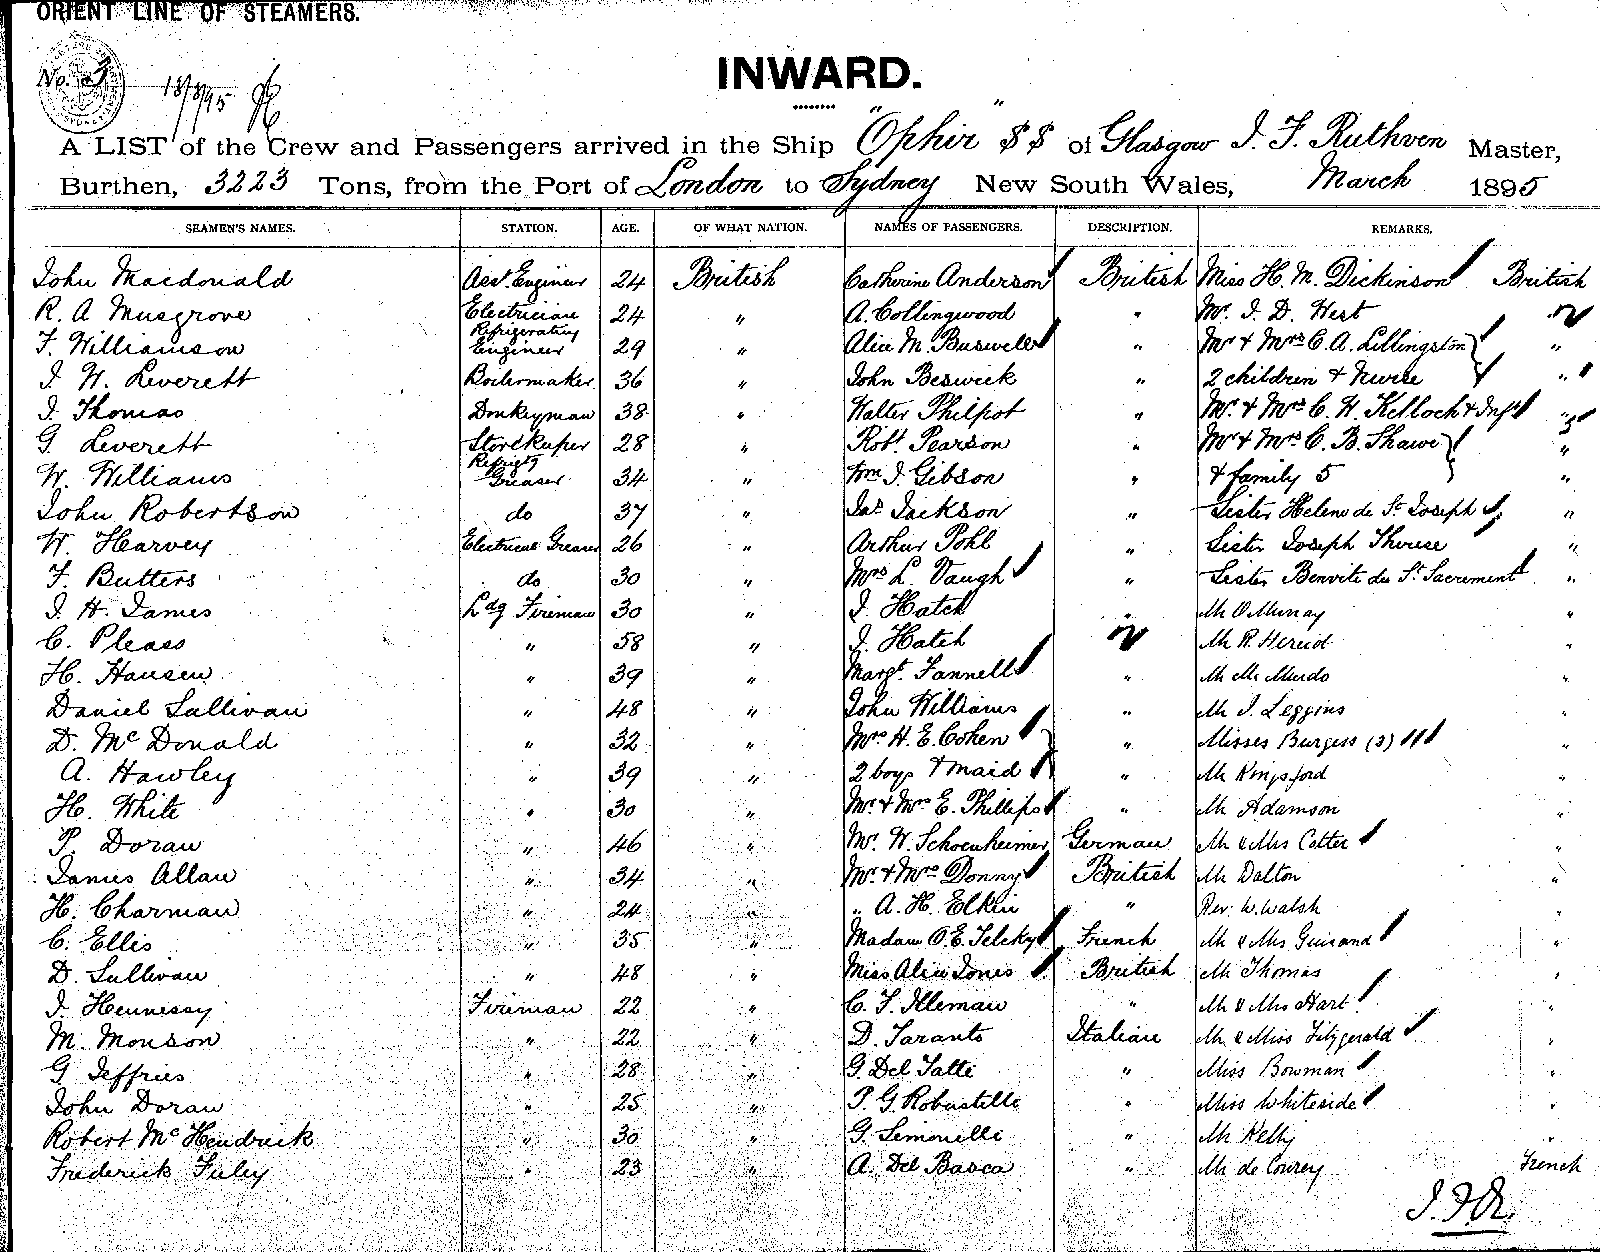 ORIENT LINE OF STEAMERS.
No. 3
18/3/95
INWARD.
A LIST of the Crew and Passengers arrived in the Ship "Ophir" SS of Glasgow J. F. Ruthven Master,
Burthen, 3223 Tons, from the Port of London to Sydney New South Wales, March 1895
SEAMEN'S NAMES. STATION. AGE. OF WHAT NATION. NAMES OF PASSENGERS. DESCRIPTION. REMARKS.
John Macdonald Asst Engineer 24 British Catherine Anderson British Miss H. M. Dickinson British
R. A Musgrove Electrician 24 " A. Collingwood " Mr. J. D. West "
F. Williamson Refrigerating Engineer 29 " Alice M. Buswell " Mr & Mrs C. A. Lillingston "
J. W. Leverett Boilermaker 36 " John Beswick " 2 children & Nurse "
J. Thomas Donkeyman 38 " Walter Philpot " Mr. & Mrs C. W. Kelloch & Inft "
G. Leverett Storekeeper 28 " Robt Pearson " Mr & Mrs C. B. Shawe "
W. Williams Refrigtg Greaser 34 " Wm J. Gibson " & family 5 "
John Robertson do 37 " Jas Jackson " Sister Helene de St Joseph "
W. Harvey Electrical Greaser 26 " Arthur Pohl " Sister Joseph Therese "
F. Butters do 30 " Mrs L. Vaugh " Sister Benvite du St Sacrement "
J. H. James Ldg Fireman 30 " J. Hatch " Mr O Murray "
C. Pleass " 58 " J. Hatch " Mr R. Heriot "
H. Hansen " 39 " Margt. Fannell " Mr Mc Murdo "
Daniel Sullivan " 48 " John Williams " Mr J. Leggins "
D. McDonald " 32 " Mrs H. E. Cohen " Misses Burgess (3) "
A. Hawley " 39 " 2 boys & maid " Mr Kingsford "
H. White " 30 " Mr. & Mrs E. Phillips " Mr Adamson "
P. Doran " 46 " Mr. W. Schoenheimer German Mr & Mrs Cotter "
James Allan " 34 " Mr. & Mrs Donny British Mr Dalton "
H. Charman " 24 " " A. H. Elkin " Rev. W. Walsh "
C. Ellis " 35 " Madam O. E. Telcky French Mr & Mrs Guirand "
D. Sullivan " 48 " Miss Alice Jones British Mr Thomas "
J. Hennessy Fireman 22 " C. F. Illeman " Mr & Mrs Hart "
M. Monson " 22 " D. Taranto Italian Mr & Miss Fitzgerald "
G Jeffries " 28 " G Del Tatte " Miss Bowman "
John Doran " 25 " P. G. Robustelli " Miss Whiteside "
Robert McHendrick " 30 " G. Simonelli " Mr Kelly "
Frederick Tuley " 23 " A. Del Basca " Mr de Courcy French
J.F.R.